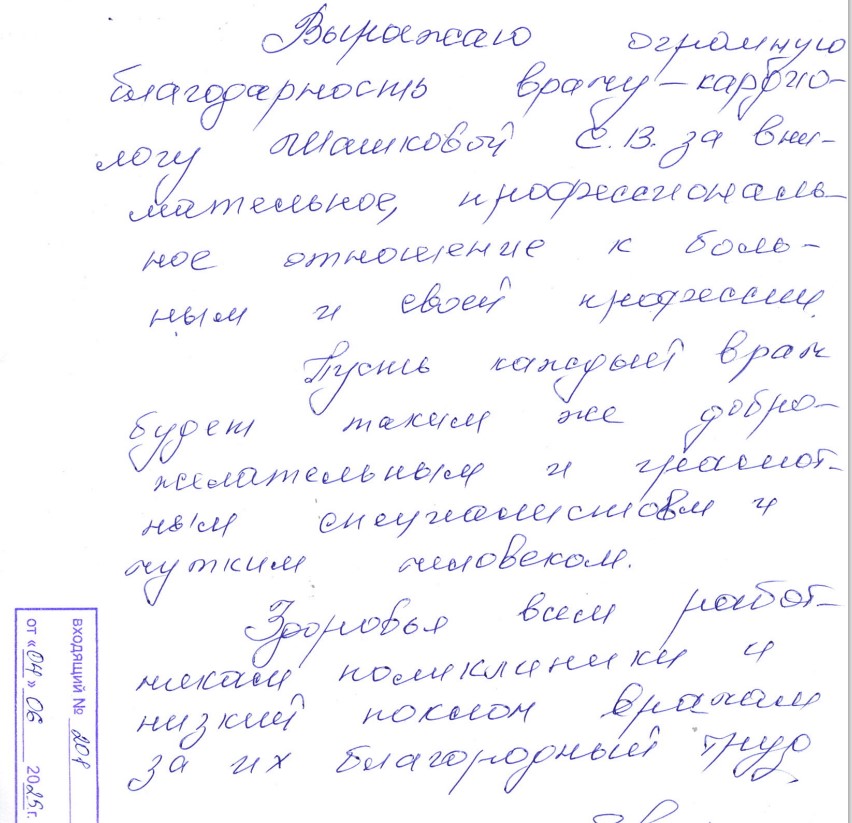 Выражаю огромную
благодарность врачу-кардио-
логу Пашковой С.В. за вни-
мательное, профессиональ-
ное отношение к боль-
ным и своей профессии.
Пусть каждый врач
будет таким же добро-
желательным и грамот-
ным специалистом и
чутким человеком.
Здоровья всем работ-
никам поликлиники и
низкий поклон врачам
за их благородный труд
ВХОДЯЩИЙ № 208
от «04» 06 2025 г.